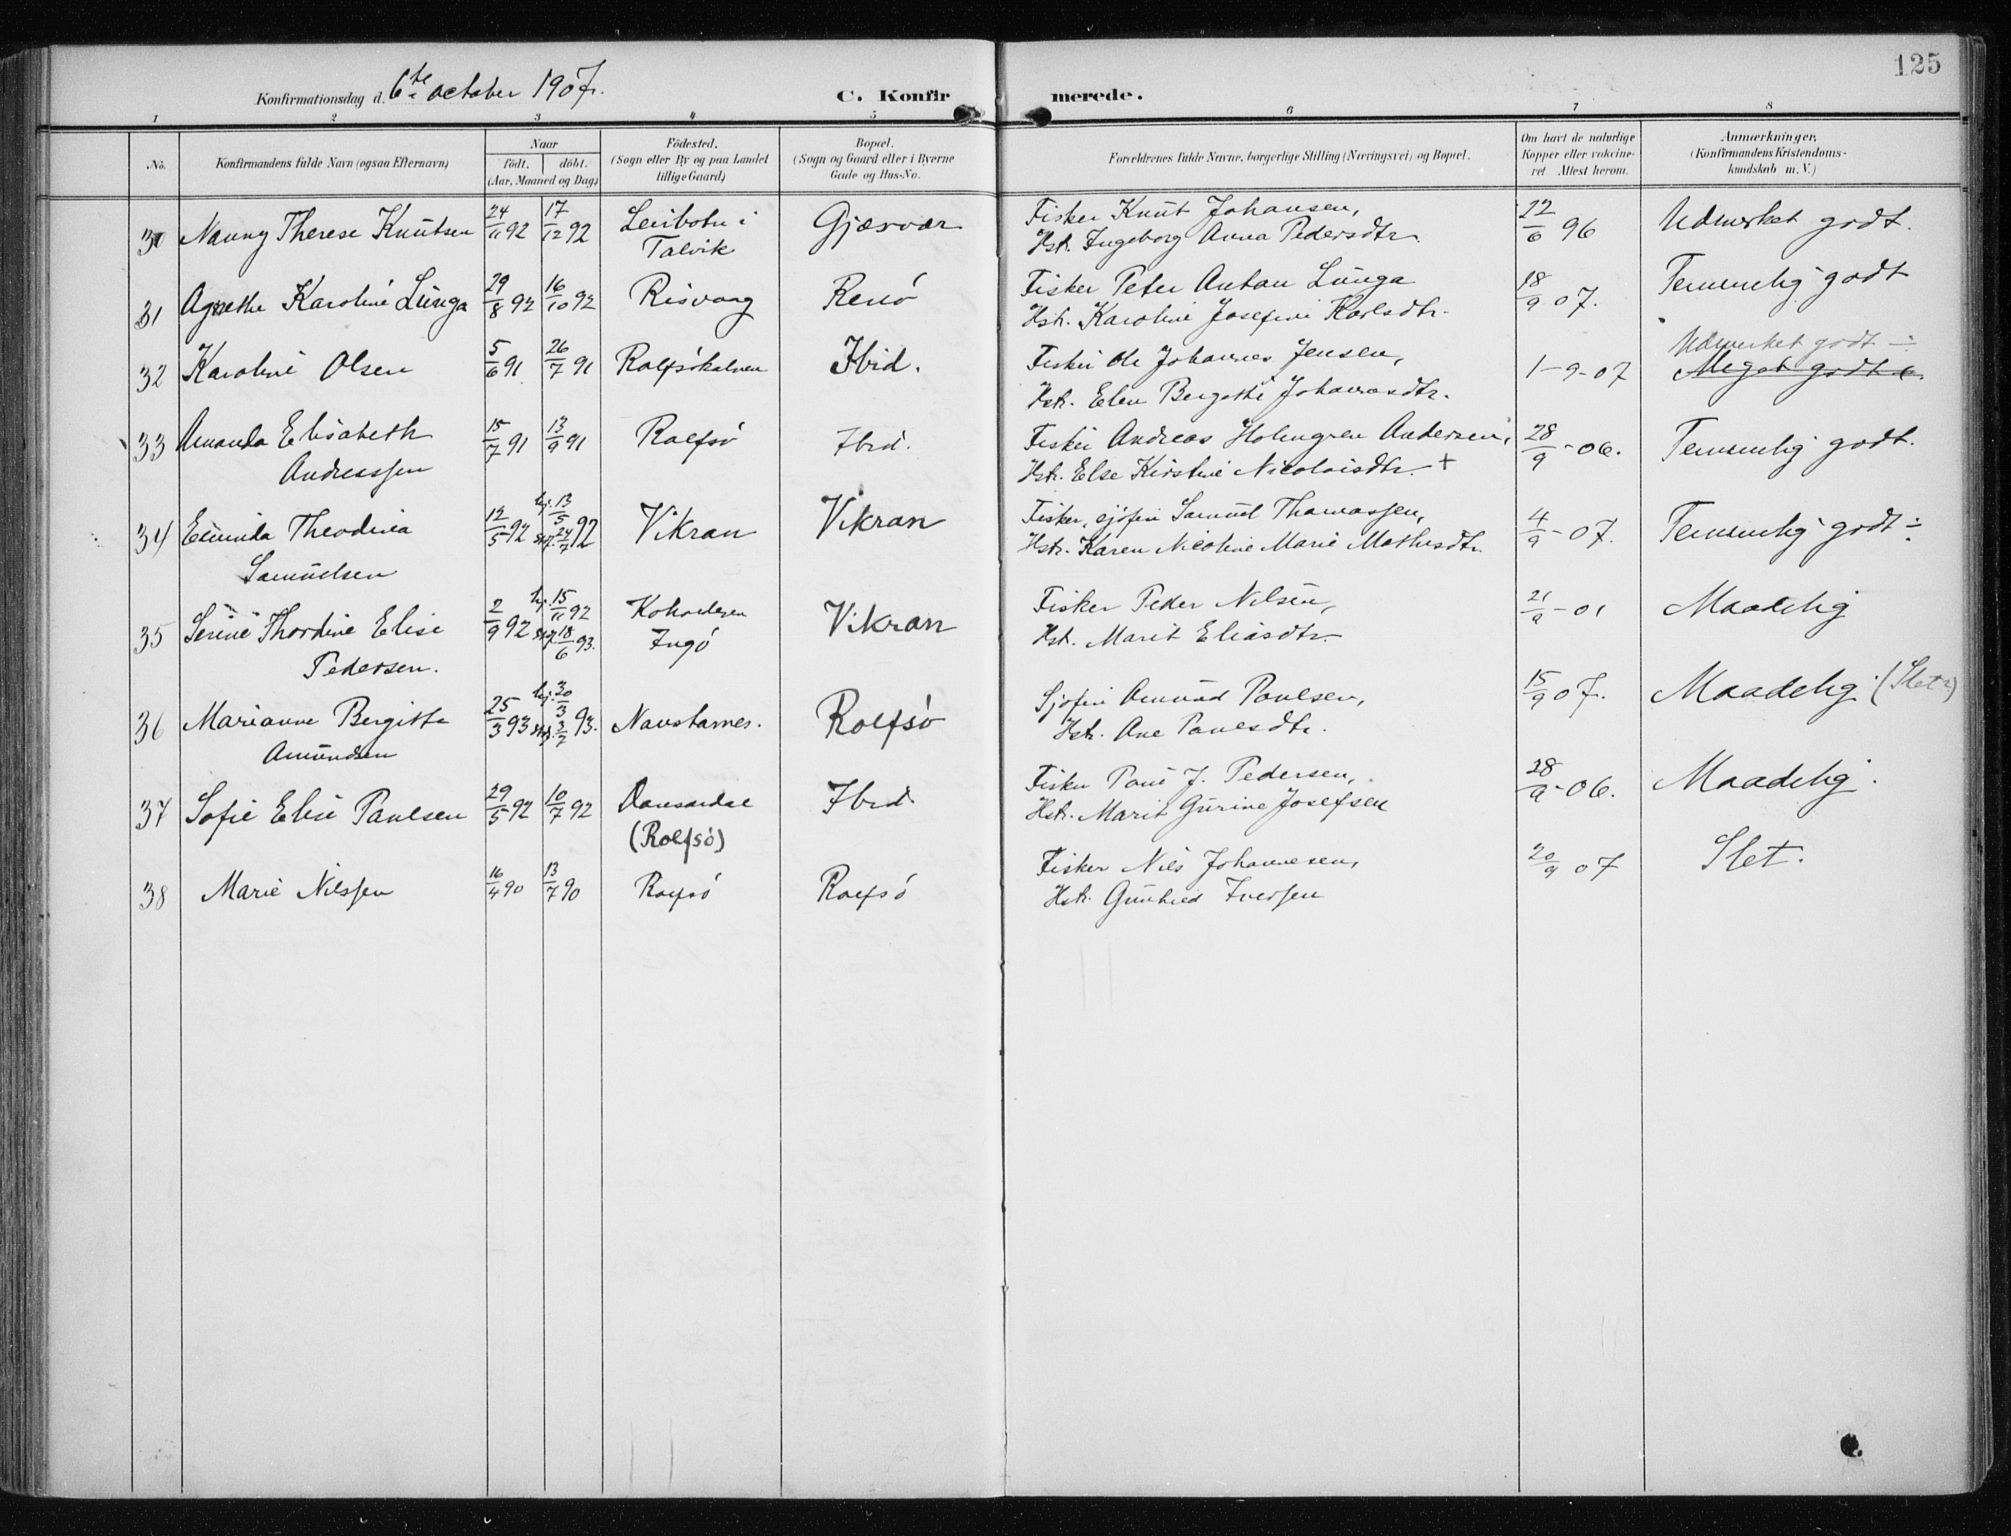 125
Konfirmationsdag d. 6te october 1907.
C. Konfirmerede.
1 2 3 4 5 6 7 8
No. Konfirmandens fulde Navn (ogsaa Efternavn) Naar født. døbt. (Aar, Maaned og Dag) Fødested. (Sogn eller By og paa Landet tillige Gaard) Bopæl. (Sogn og Gaard eller i Byerne Gade og Hus-No. Forældrenes fulde Navne, borgerlige Stilling (Næringsvei) og Bopæl. Om havt de naturlige Kopper eller vaccineret. Attest herom. Anmærkninger, (Konfirmandens Kristendomskundskab m. V.)
30 Nanny Therese Knutsen 24/11 92 17/12 92 Leirbotn i Talvik Gjæsvær Fisker Knut Johansen, 22/6 96 Udmerket godt.
Hst. Ingeborg Anna Pedersdtr.
31 Agnethe Karoline Lunga 29/8 92 16/10 92 Risvaag Rensö Fisker Peter Anton Lunga 18/9 07. Temmelig godt
Hst. Karoline Josefine Karlsdtr.
32 Karoline Olsen 5/6 91 26/7 91 Rolfsökalven Ibid. Fisker Ole Johannes Jensen, 1-9-07 Udmerket godt ÷
Meget godt
Hst. Elen Bergethe Johannesdtr.
33 Amanda Elisabeth 15/7 91 13/9 91 Rolfsö Ibid. Fisker Andreas Holmgren Andersen, 28/9 - 06. Temmelig godt.
Andreassen Hst. Else Kirstine Nicolaisdtr. +
34 Elminda Theodina 12/5 92 hj. 13/5 stf. 24/7 92 Vikran Vikran Fisker, sjöfin Samuel Thomassen, 4/9 - 07. Temmelig godt ÷
Samuelsen Hst. Karen Nicoline Marie Mathisdtr.
35 Serine Thordine Elise 2/9 92 hj. 15/11 92 stf. 18/6 93. Ingö Vikran Fisker Peder Nilsen, 21/9 - 01 Maadelig
Pedersen. Hst. Marit Eliasdtr.
36 Marianne Bergitte 25/3 93 hj. 30/3 stf. 3/7 93. Navstarnes. Rolfsö Sjöfin Amund Paulsen, 15/9 07. Maadelig (Slet?)
Amundsen Hst. Ane Paulsdtr.
37 Sofie Elise Paulsen 29/5 92 10/7 92 (Rolfsö) Ibid Fisker Paul J. Pedersen, 28/9 - 06. Maadelig.
Hst. Marit Gurine Josefsen
38 Marie Nilssen 16/4 90 13/7 90 Rolfsö Rolfsö Fisker Nils Johannesen, 20/9 07 Slet.
Hst. Gunhild Iversen